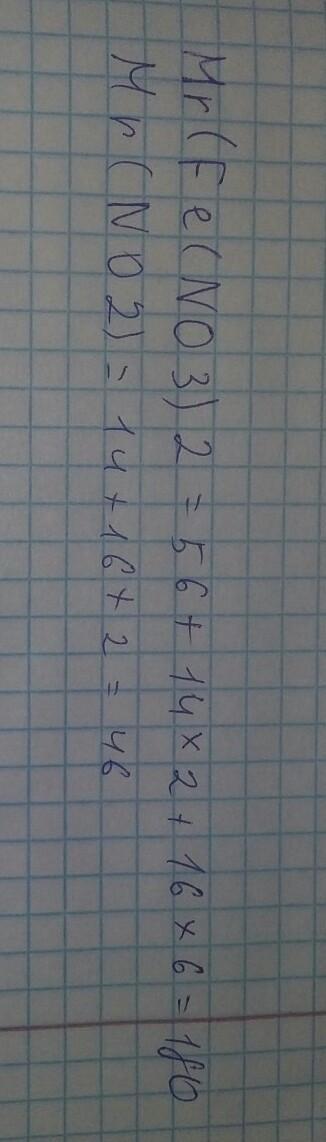 Mr(Fe(NO3)2 = 56 + 14 × 2 + 16 × 6 = 180
Mr(NO2) = 14 + 16 × 2 = 46